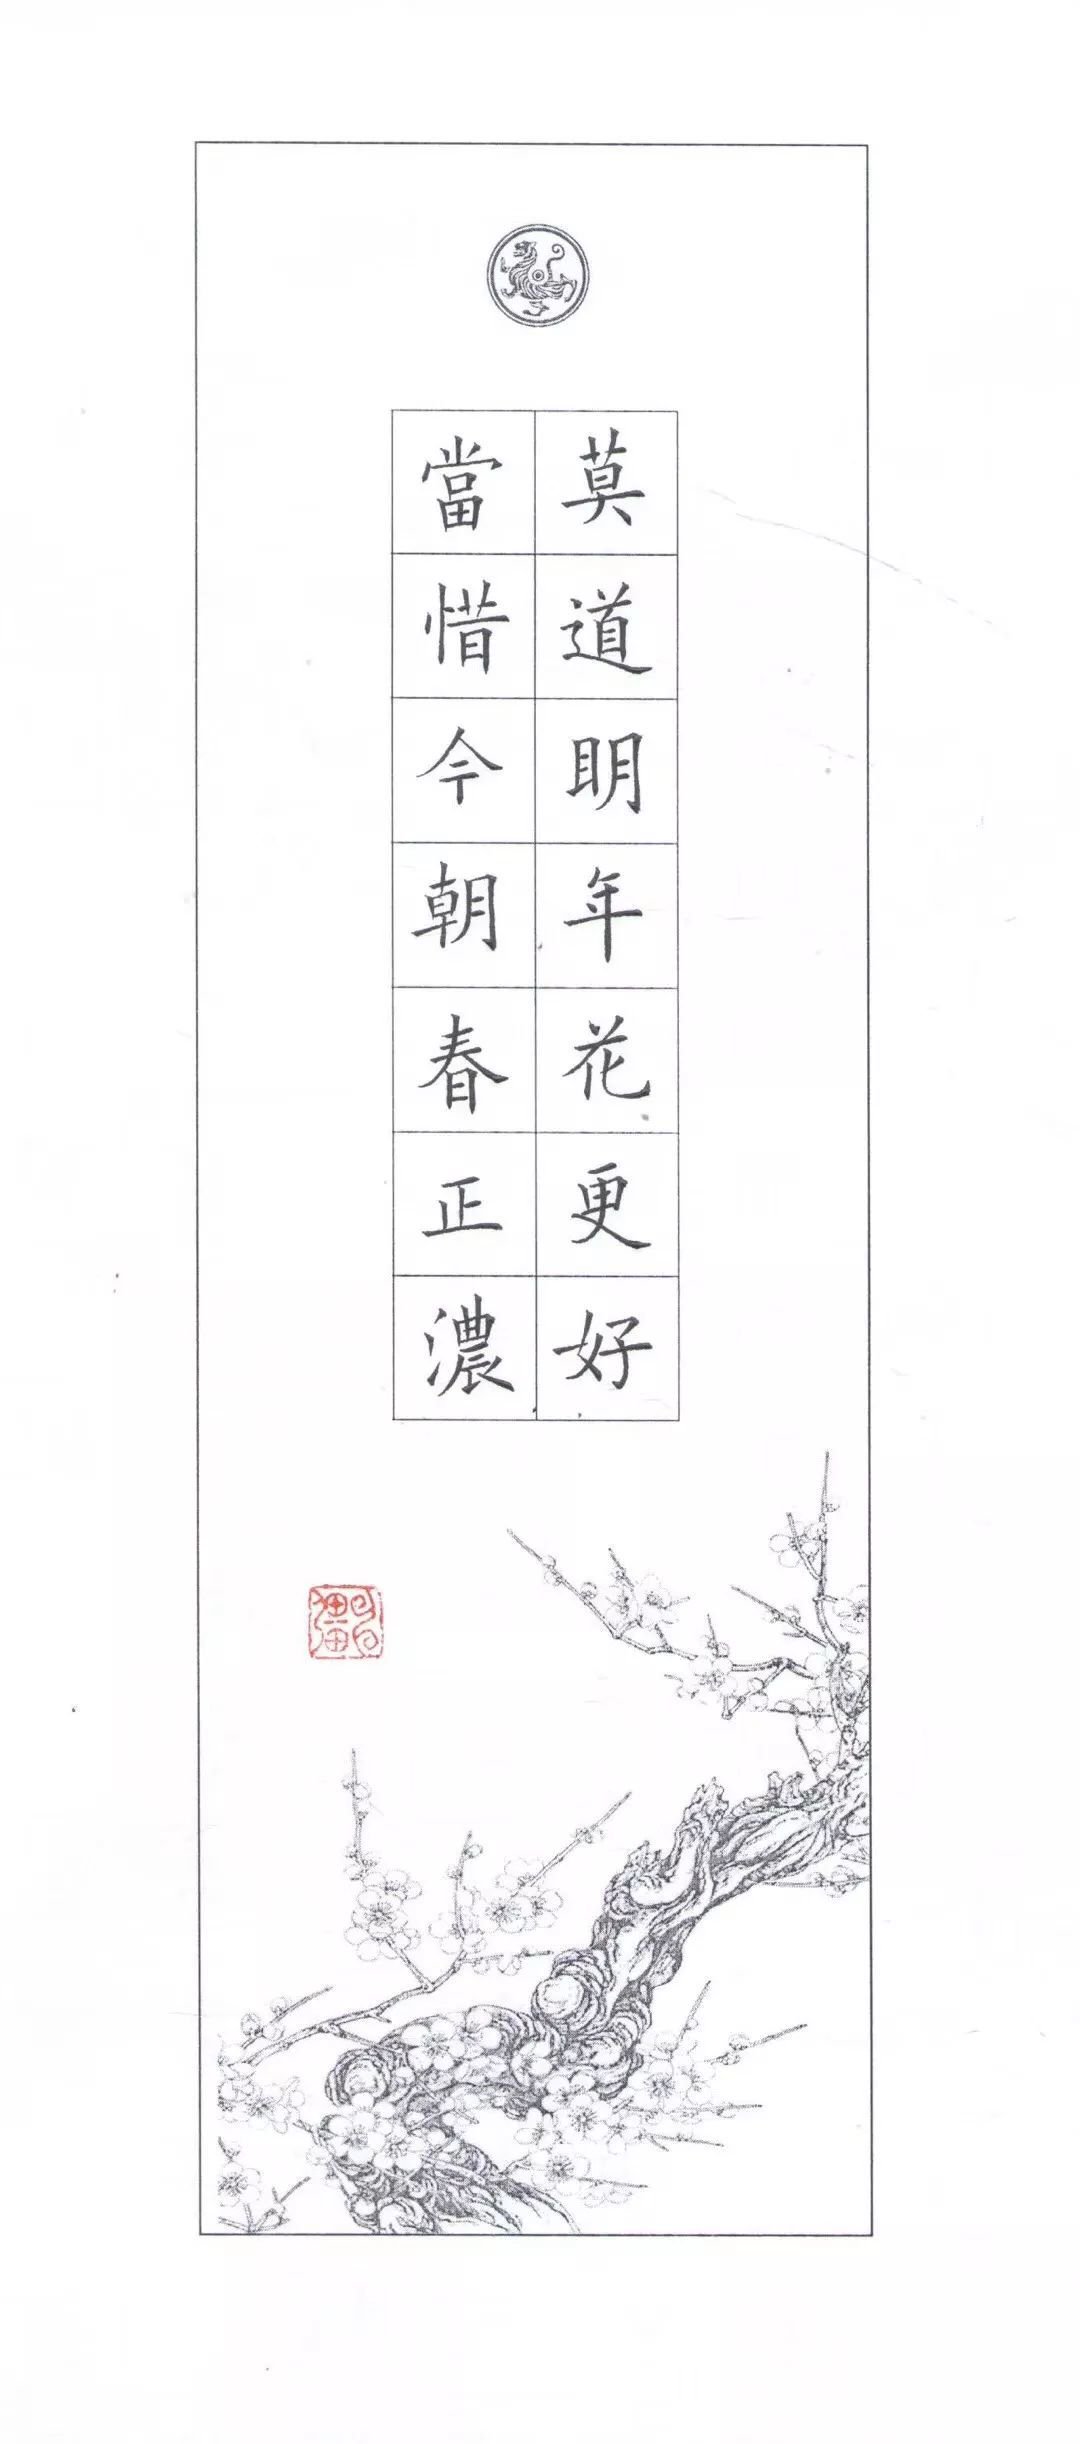 莫道明年花更好
當惜今朝春正濃